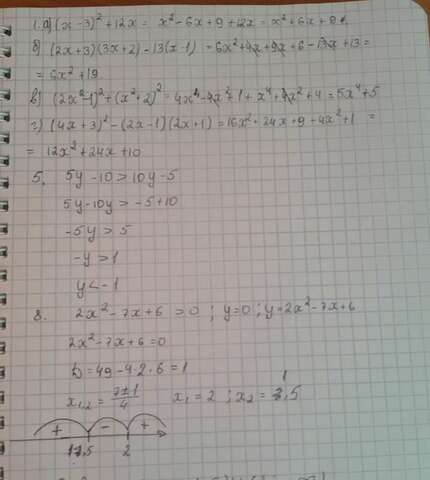 1. а) (x-3)²+12x = x²-6x+9+12x = x²+6x+9
б) (2x+3)(3x+2)-13(x-1) = 6x²+4x+9x+6-13x+13 =
= 6x²+19
в) (2x²-1)²+(x²+2)² = 4x⁴-4x²+1+x⁴+4x²+4 = 5x⁴+5
г) (4x+3)²-(2x-1)(2x+1) = 16x²+24x+9-4x²+1 =
= 12x²+24x+10
5. 5y-10>10y-5
5y-10y>-5+10
-5y>5
-y>1
y<-1
8. 2x²-7x+6>0; y=0; y=2x²-7x+6
2x²-7x+6=0
D=49-4·2·6=1
x₁,₂ = 7±1/4 x₁=2; x₂=1,5
+ - +
1,5 2